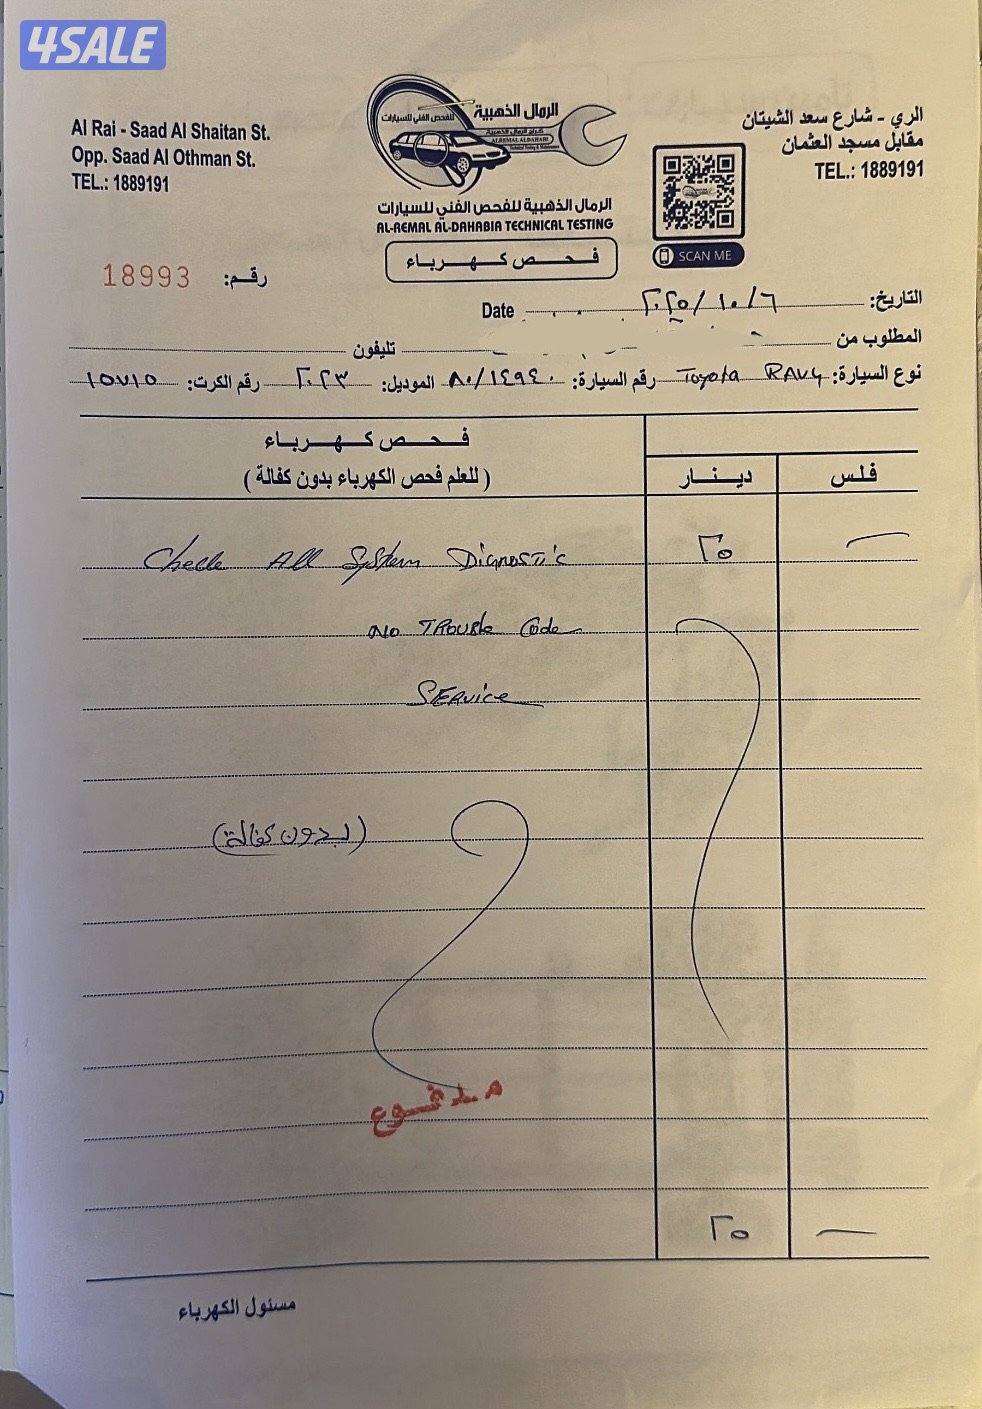 4SALE
Al Rai - Saad Al Shaitan St.
Opp. Saad Al Othman St.
TEL.: 1889191
الرمال الذهبية
للفحص الفني للسيارات
الرمال الذهبية للفحص الفني للسيارات
AL-REMAL AL-DAHABIA TECHNICAL TESTING
فحص كهرباء
الري - شارع سعد الشيتان
مقابل مسجد العثمان
TEL.: 1889191
SCAN ME
رقم: 18993
التاريخ: ٢٠٢٥/١٠/٦ Date
المطلوب من تليفون
نوع السيارة: Toyota RAV4 رقم السيارة: ٨٠/١٤٩٤٠ الموديل: ٢٠٢٣ رقم الكرت: ١٥٧١٥
فحص كهرباء
(للعلم فحص الكهرباء بدون كفالة)
دينار فلس
Check All System Diagnostic ٢٥ —
No Trouble Code
Service
(بدون كفالة)
مدفوع
٢٥ —
مسئول الكهرباء